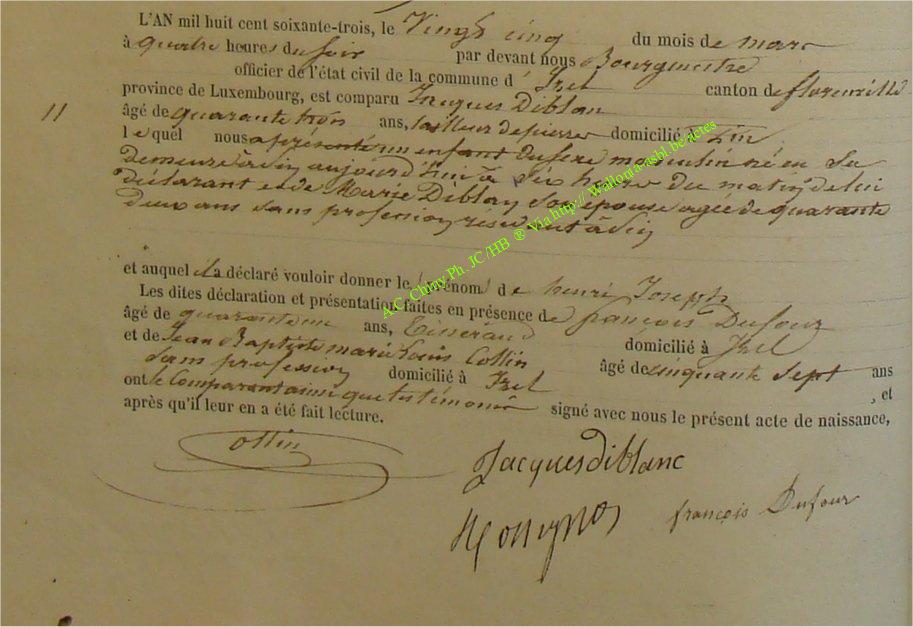 L'AN mil huit cent soixante-trois, le Vingt cinq du mois de mars
à quatre heures du soir par devant nous Bourgmestre
officier de l'état civil de la commune d' Izel canton de florenville
province de Luxembourg, est comparu Jacques Diblan
11 âgé de quarante trois ans, tailleur de pierre domicilié
lequel nous a présenté un enfant du sexe masculin né en sa
demeure à aujourd'hui à six heures du matin de lui
déclarant et de Marie Diblan son épouse agée de quarante
deux ans sans profession résident à
et auquel il a déclaré vouloir donner le prénom de henri Joseph
Les dites déclaration et présentation faites en présence de françois Dufour
âgé de quarante un ans, Tisserand domicilié à Izel
et de Jean Baptiste marie Louis Collin âgé de cinquante sept ans
sans profession domicilié à Izel , et
ont le Comparant ainsi que les témoins signé avec nous le présent acte de naissance,
après qu'il leur en a été fait lecture.
Collin
Jacques diblanc
françois Dufour
A.C. Chiny Ph. JC /HB ® Via http:// Wallonia-asbl.be/actes